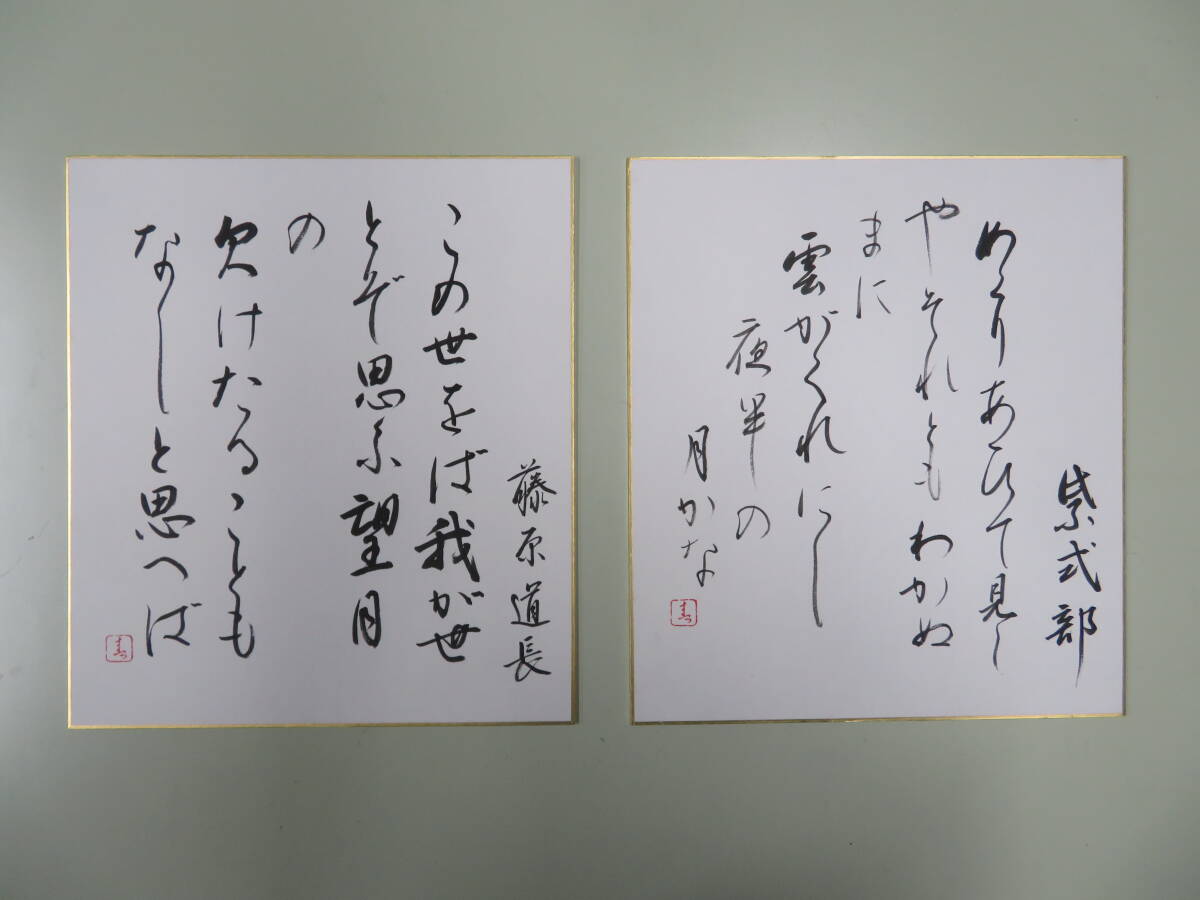 紫式部
めくりあひて見し
やそれともわかぬ
まに
雲がくれにし
夜半の
月かな
藤原道長
この世をば我が世
とぞ思ふ望月
の
欠けたることも
なしと思へば